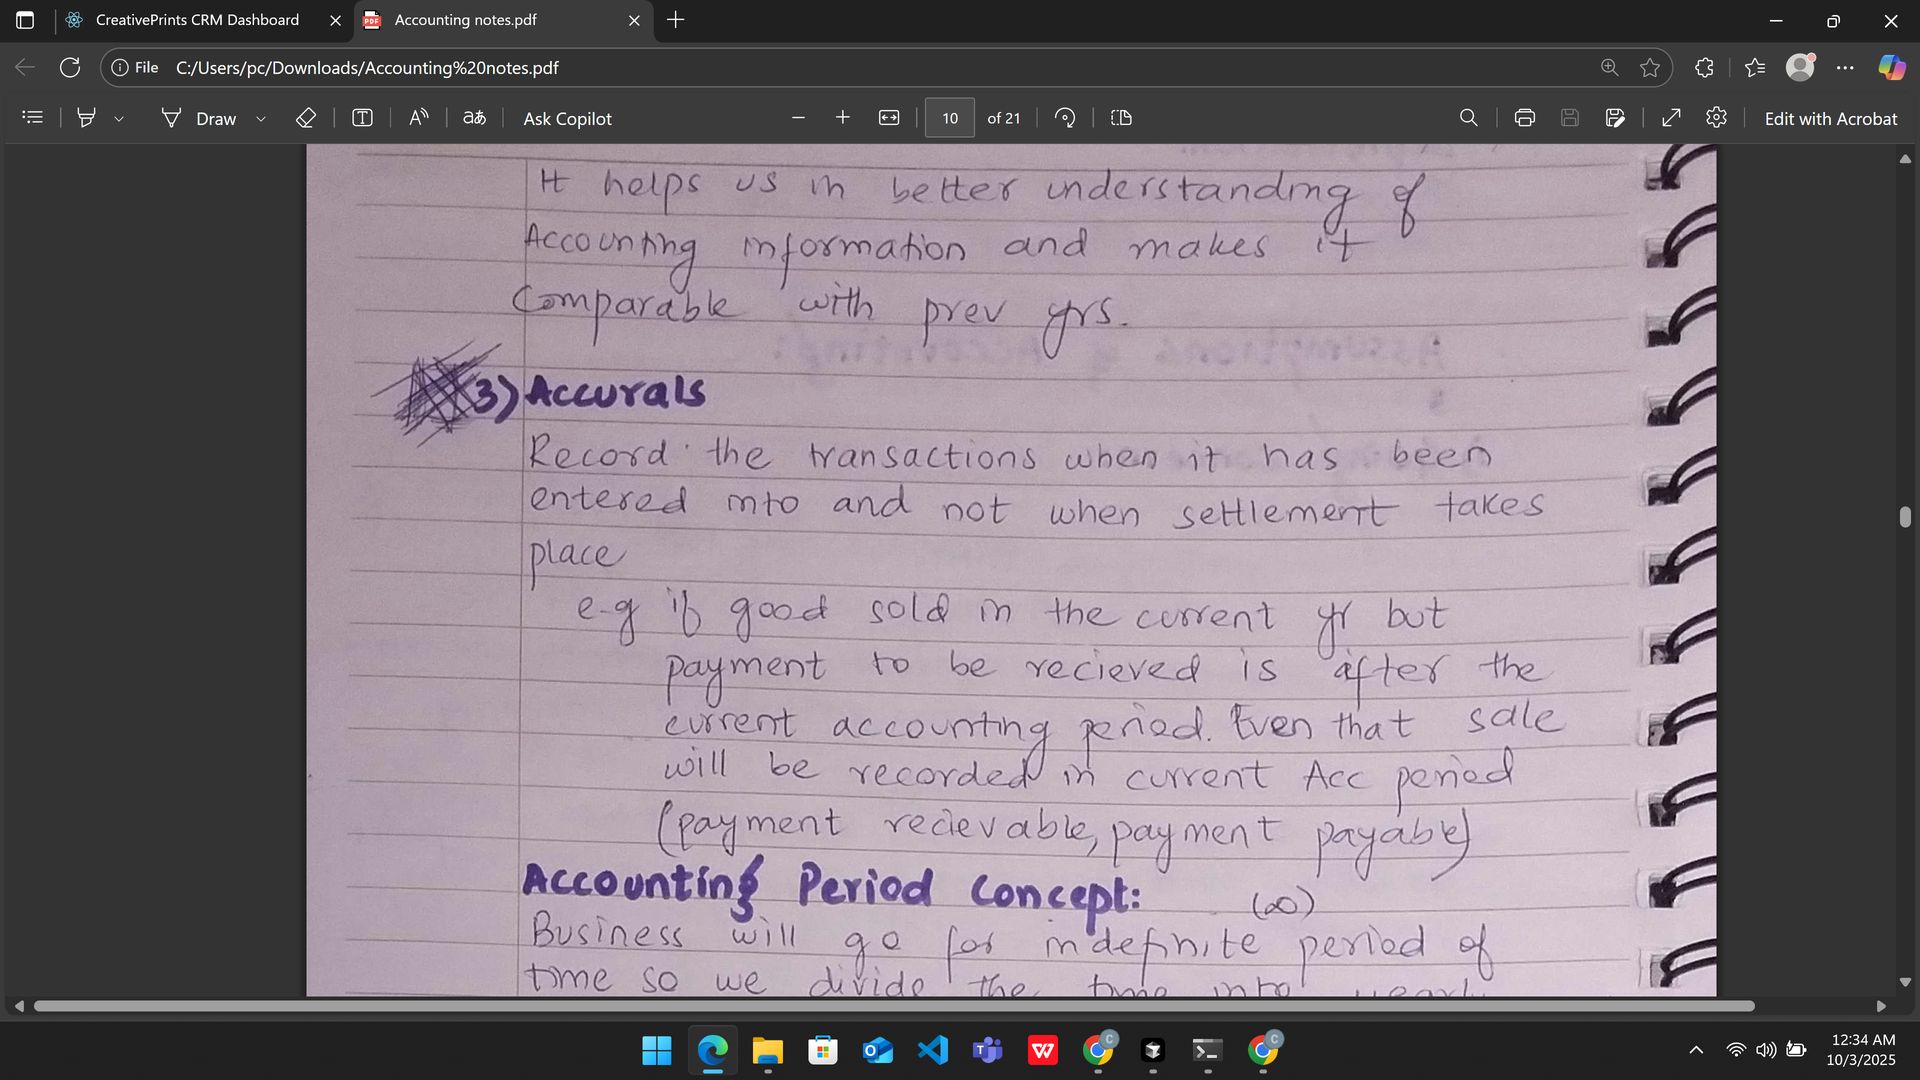 CreativePrints CRM Dashboard
Accounting notes.pdf
File C:/Users/pc/Downloads/Accounting%20notes.pdf
Draw
Ask Copilot
10 of 21
Edit with Acrobat
It helps us in better understanding of
Accounting information and makes it
Comparable with prev yrs.
3) Accurals
Record the transactions when it has been
entered into and not when settlement takes
place
e-g if good sold in the current yr but
payment to be recieved is after the
current accounting period. Even that sale
will be recorded in current Acc period
(payment recievable, payment payable)
Accounting Period Concept:
(∞)
Business will go for indefinite period of
time so we divide the time into yearly
12:34 AM
10/3/2025